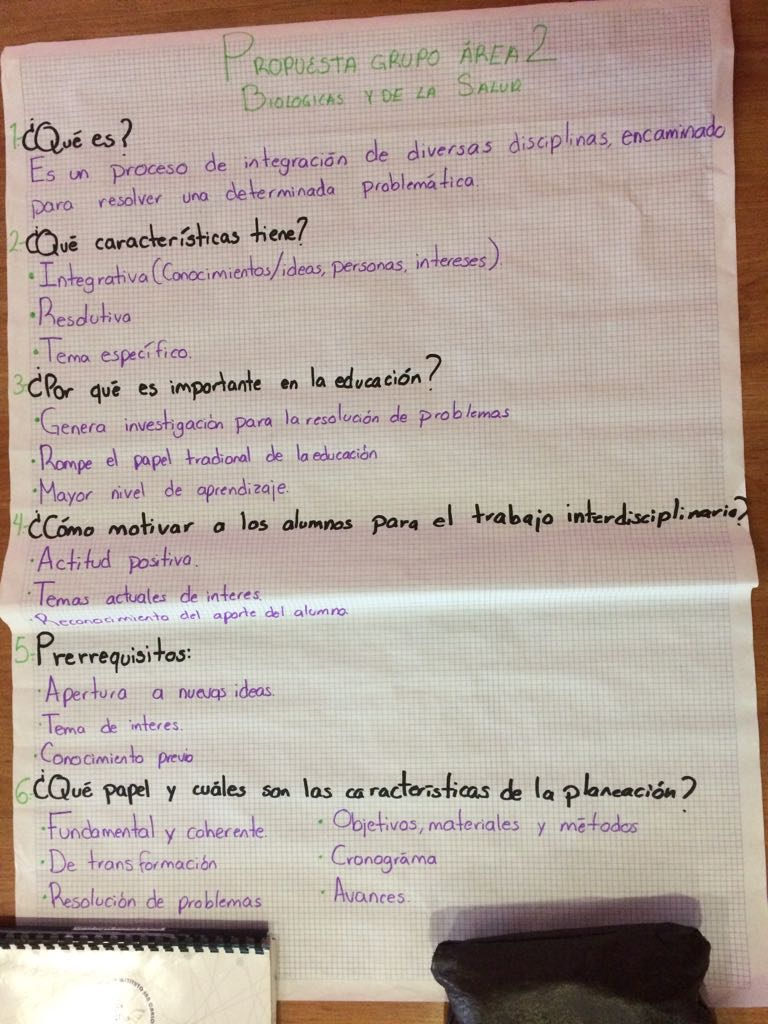 PROPUESTA GRUPO ÁREA 2
BIOLOGICAS Y DE LA SALUD
1-¿Qué es?
Es un proceso de integración de diversas disciplinas, encaminado
para resolver una determinada problemática.
2-¿Qué características tiene?
· Integrativa (Conocimientos/ideas, personas, intereses).
· Resolutiva
· Tema específico.
3-¿Por qué es importante en la educación?
· Genera investigación para la resolución de problemas
· Rompe el papel tradional de la educación
· Mayor nivel de aprendizaje.
4-¿Cómo motivar a los alumnos para el trabajo interdisciplinario?
· Actitud positiva.
· Temas actuales de interes.
· Reconocimiento del aporte del alumno.
5-Prerrequisitos:
· Apertura a nuevas ideas.
· Tema de interes.
· Conocimiento previo
6-¿Qué papel y cuáles son las características de la planeación?
· Fundamental y coherente.
· De transformación
· Resolución de problemas
· Objetivos, materiales y métodos
· Cronográma
· Avances.